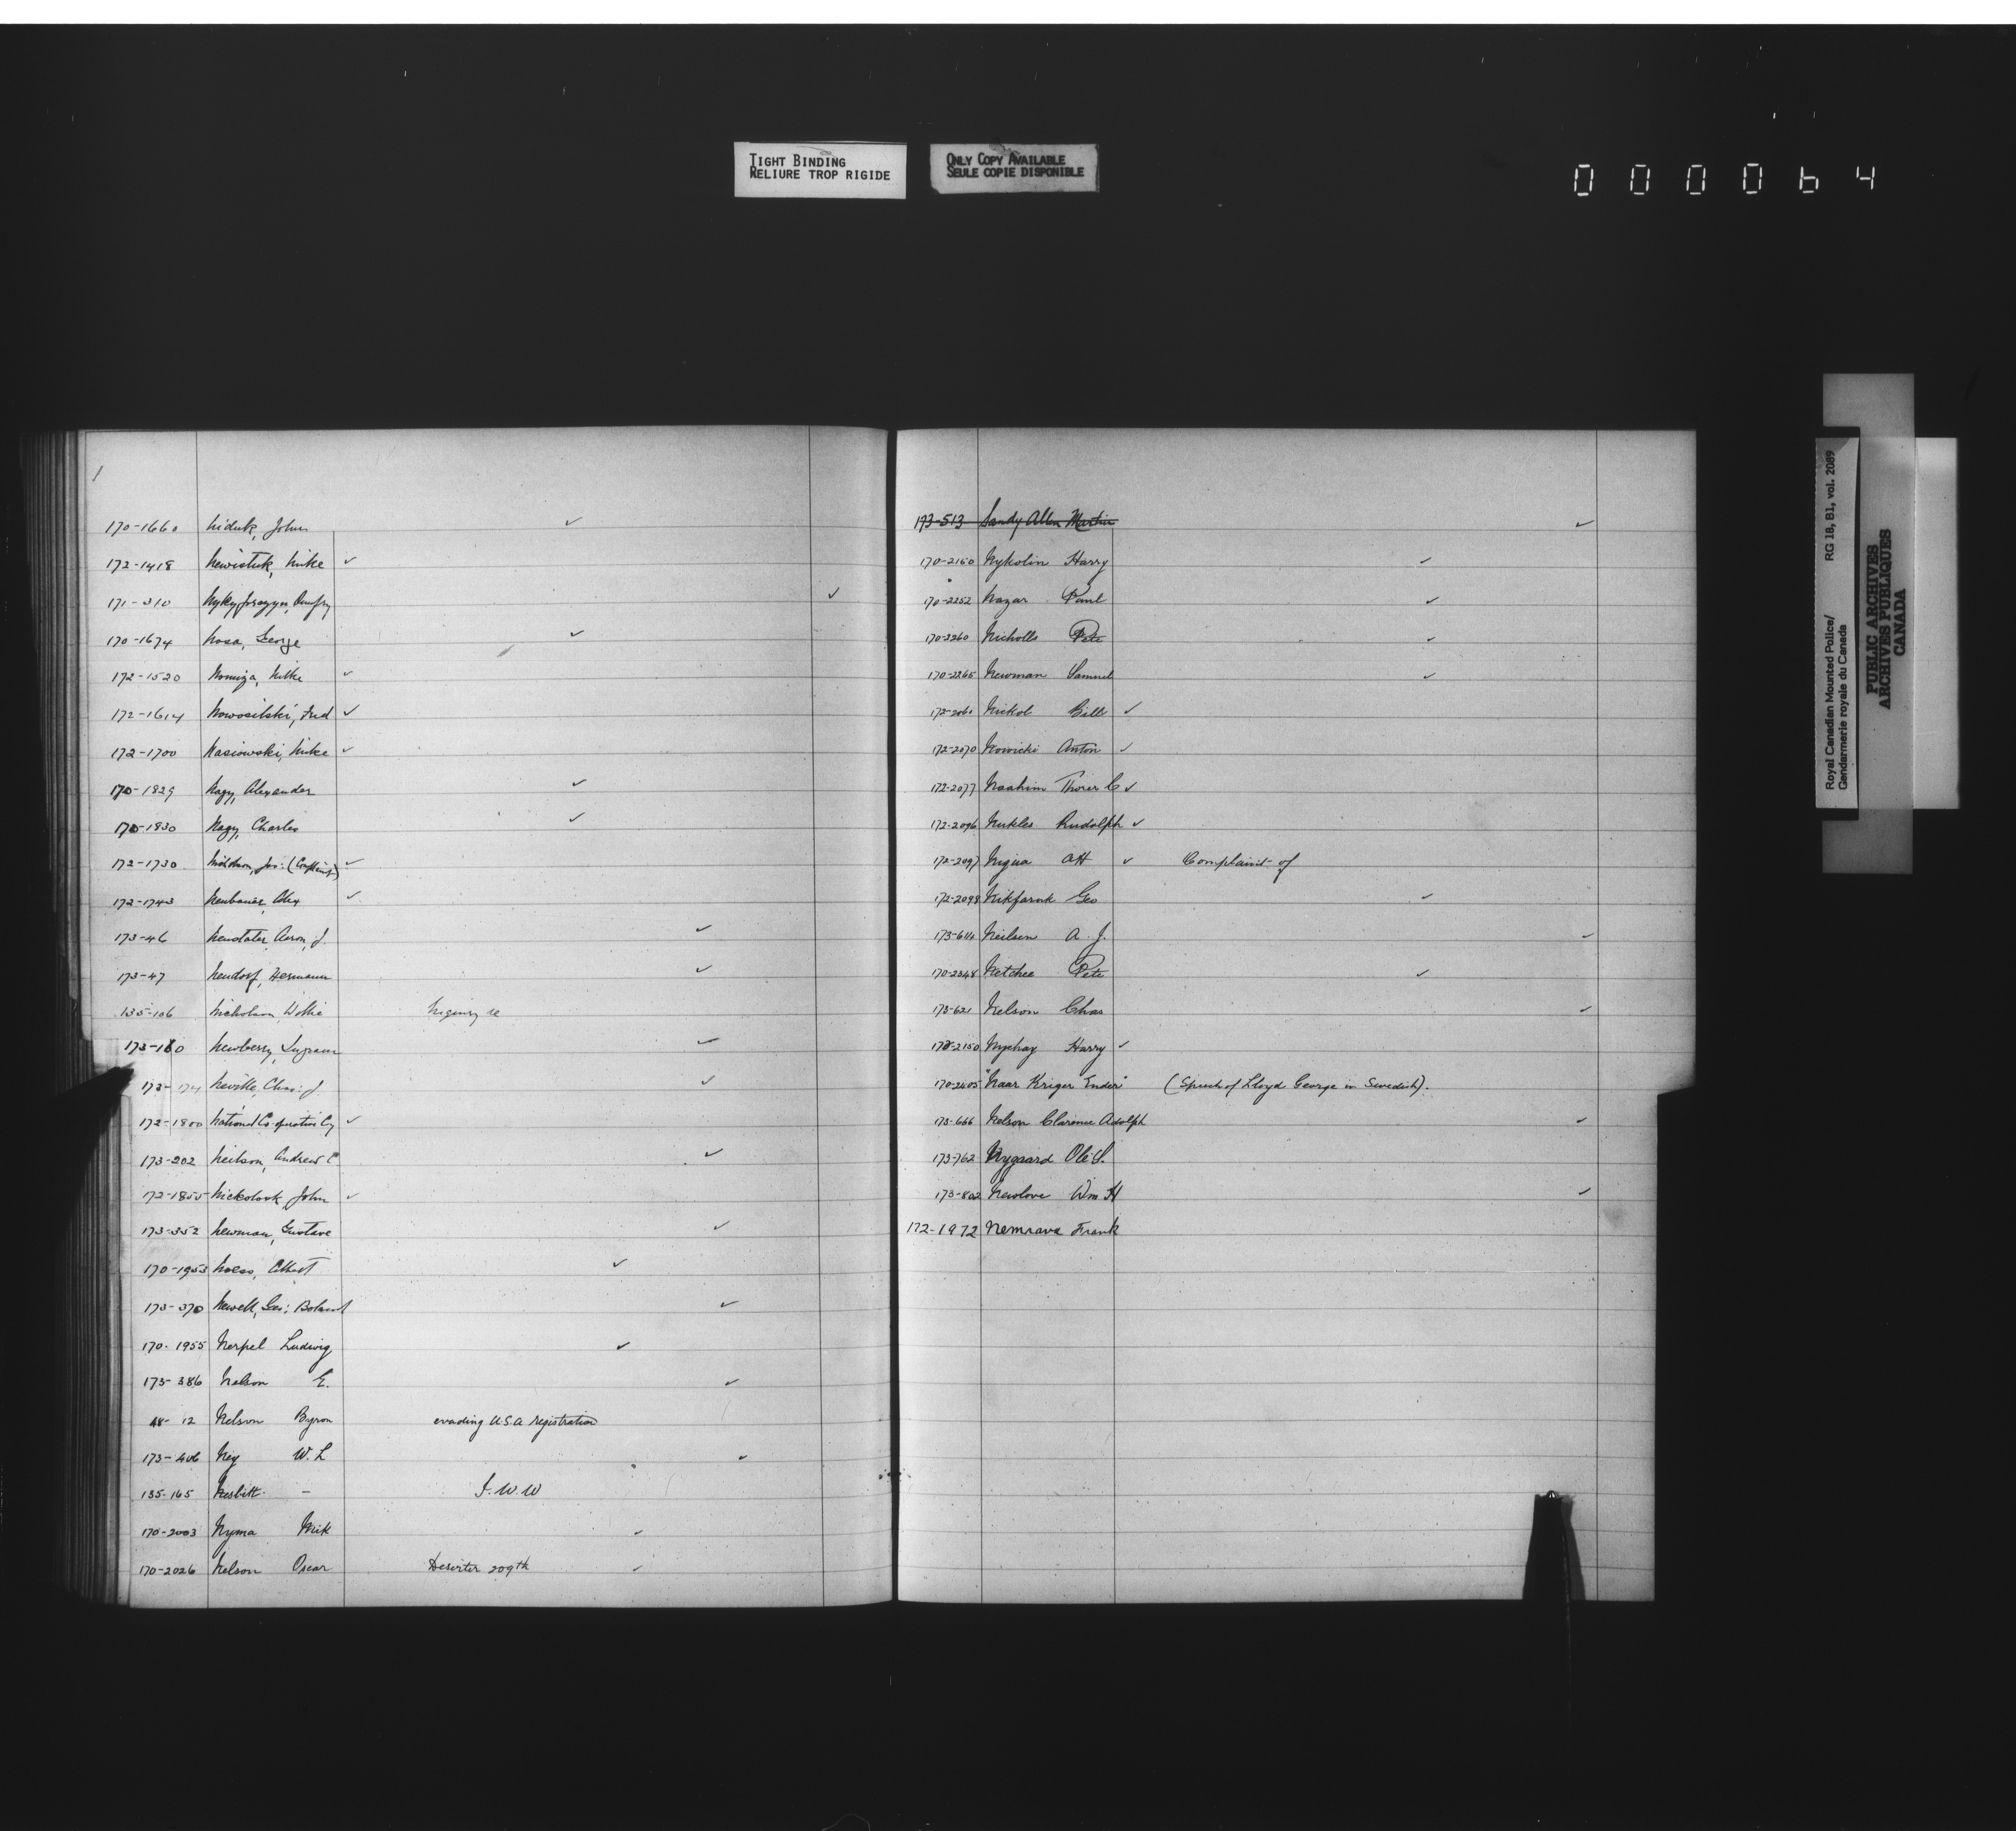 TIGHT BINDING
RELIURE TROP RIGIDE
ONLY COPY AVAILABLE
SEULE COPIE DISPONIBLE
000064
170-1660 Niduk, John ✓
172-1418 Newistuk, Mike ✓
171-310 ✓
170-1674 Nosa, George ✓
172-1520 Nomiza, Mike ✓
172-1614 Nowosilski, Fred ✓
172-1700 Nasiowski, Mike ✓
170-1829 Nagy, Alexander ✓
170-1830 Nagy, Charles ✓
172-1730 Jos: (Complaint) ✓
172-1743 Neubauer, Alex ✓
173-46 Neustater, Aaron, J. ✓
173-47 Neudorf, Hermann ✓
135-106 Nicholson, Inquiry re
173-180 Newberry, ✓
173-174 Neville, Chas: J. ✓
172-1800 National Co-operative Coy ✓
173-202 Neilson, Andrew C. ✓
172-1855 Nickolook, John ✓
173-352 Newman, Gustave ✓
170-1953 Noess, Albert ✓
173-370 Newell, Geo: ✓
170-1955 Nerpel Ludwig ✓
173-386 Nelson E. ✓
48-12 Nelson Byron evading U.S.A registration
173-406 Ney W. L ✓
135-165 Nesbitt - I. W. W
170-2003 Nyma Mik ✓
170-2026 Nelson Oscar Deserter 209th ✓
193-513 Sandy Allen Martin ✓
170-2150 Nykolin Harry ✓
170-2252 Nazar Paul ✓
170-2260 Nicholls Pete ✓
170-2265 Newman Samuel ✓
172-2060 Nickol Bill ✓
172-2070 Nowicki Anton ✓
172-2077 Naahim C ✓
172-2096 Nukles Rudolph ✓
172-2097 AH ✓ Complaint of
172-2098 Nikforuk Geo ✓
173-614 Neilsen A. J. ✓
170-2348 Netchee Pete ✓
173-621 Nelson Chas ✓
172-2150 Nychay Harry ✓
170-2405 "Naar Kriger Ender" (Speech of Lloyd George in Swedish).
173-666 Nelson Clarence Adolph ✓
173-762 Nygaard Ole S.
173-802 Newlove Wm H ✓
172-1972 Nemrava Frank
Royal Canadian Mounted Police/ RG 18, B1, vol. 2089
Gendarmerie royale du Canada
PUBLIC ARCHIVES
ARCHIVES PUBLIQUES
CANADA